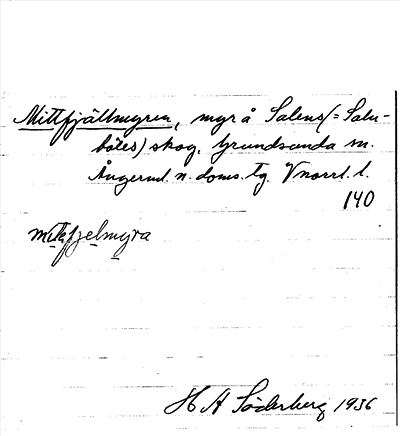 Mittfjällmyren, myr å Salens (= Salu-
böles) skog, Grundsunda sn.
Ångerml. n. doms. tg. Vnorrl. l.
140
mitfjelmyra
H A Söderberg 1936